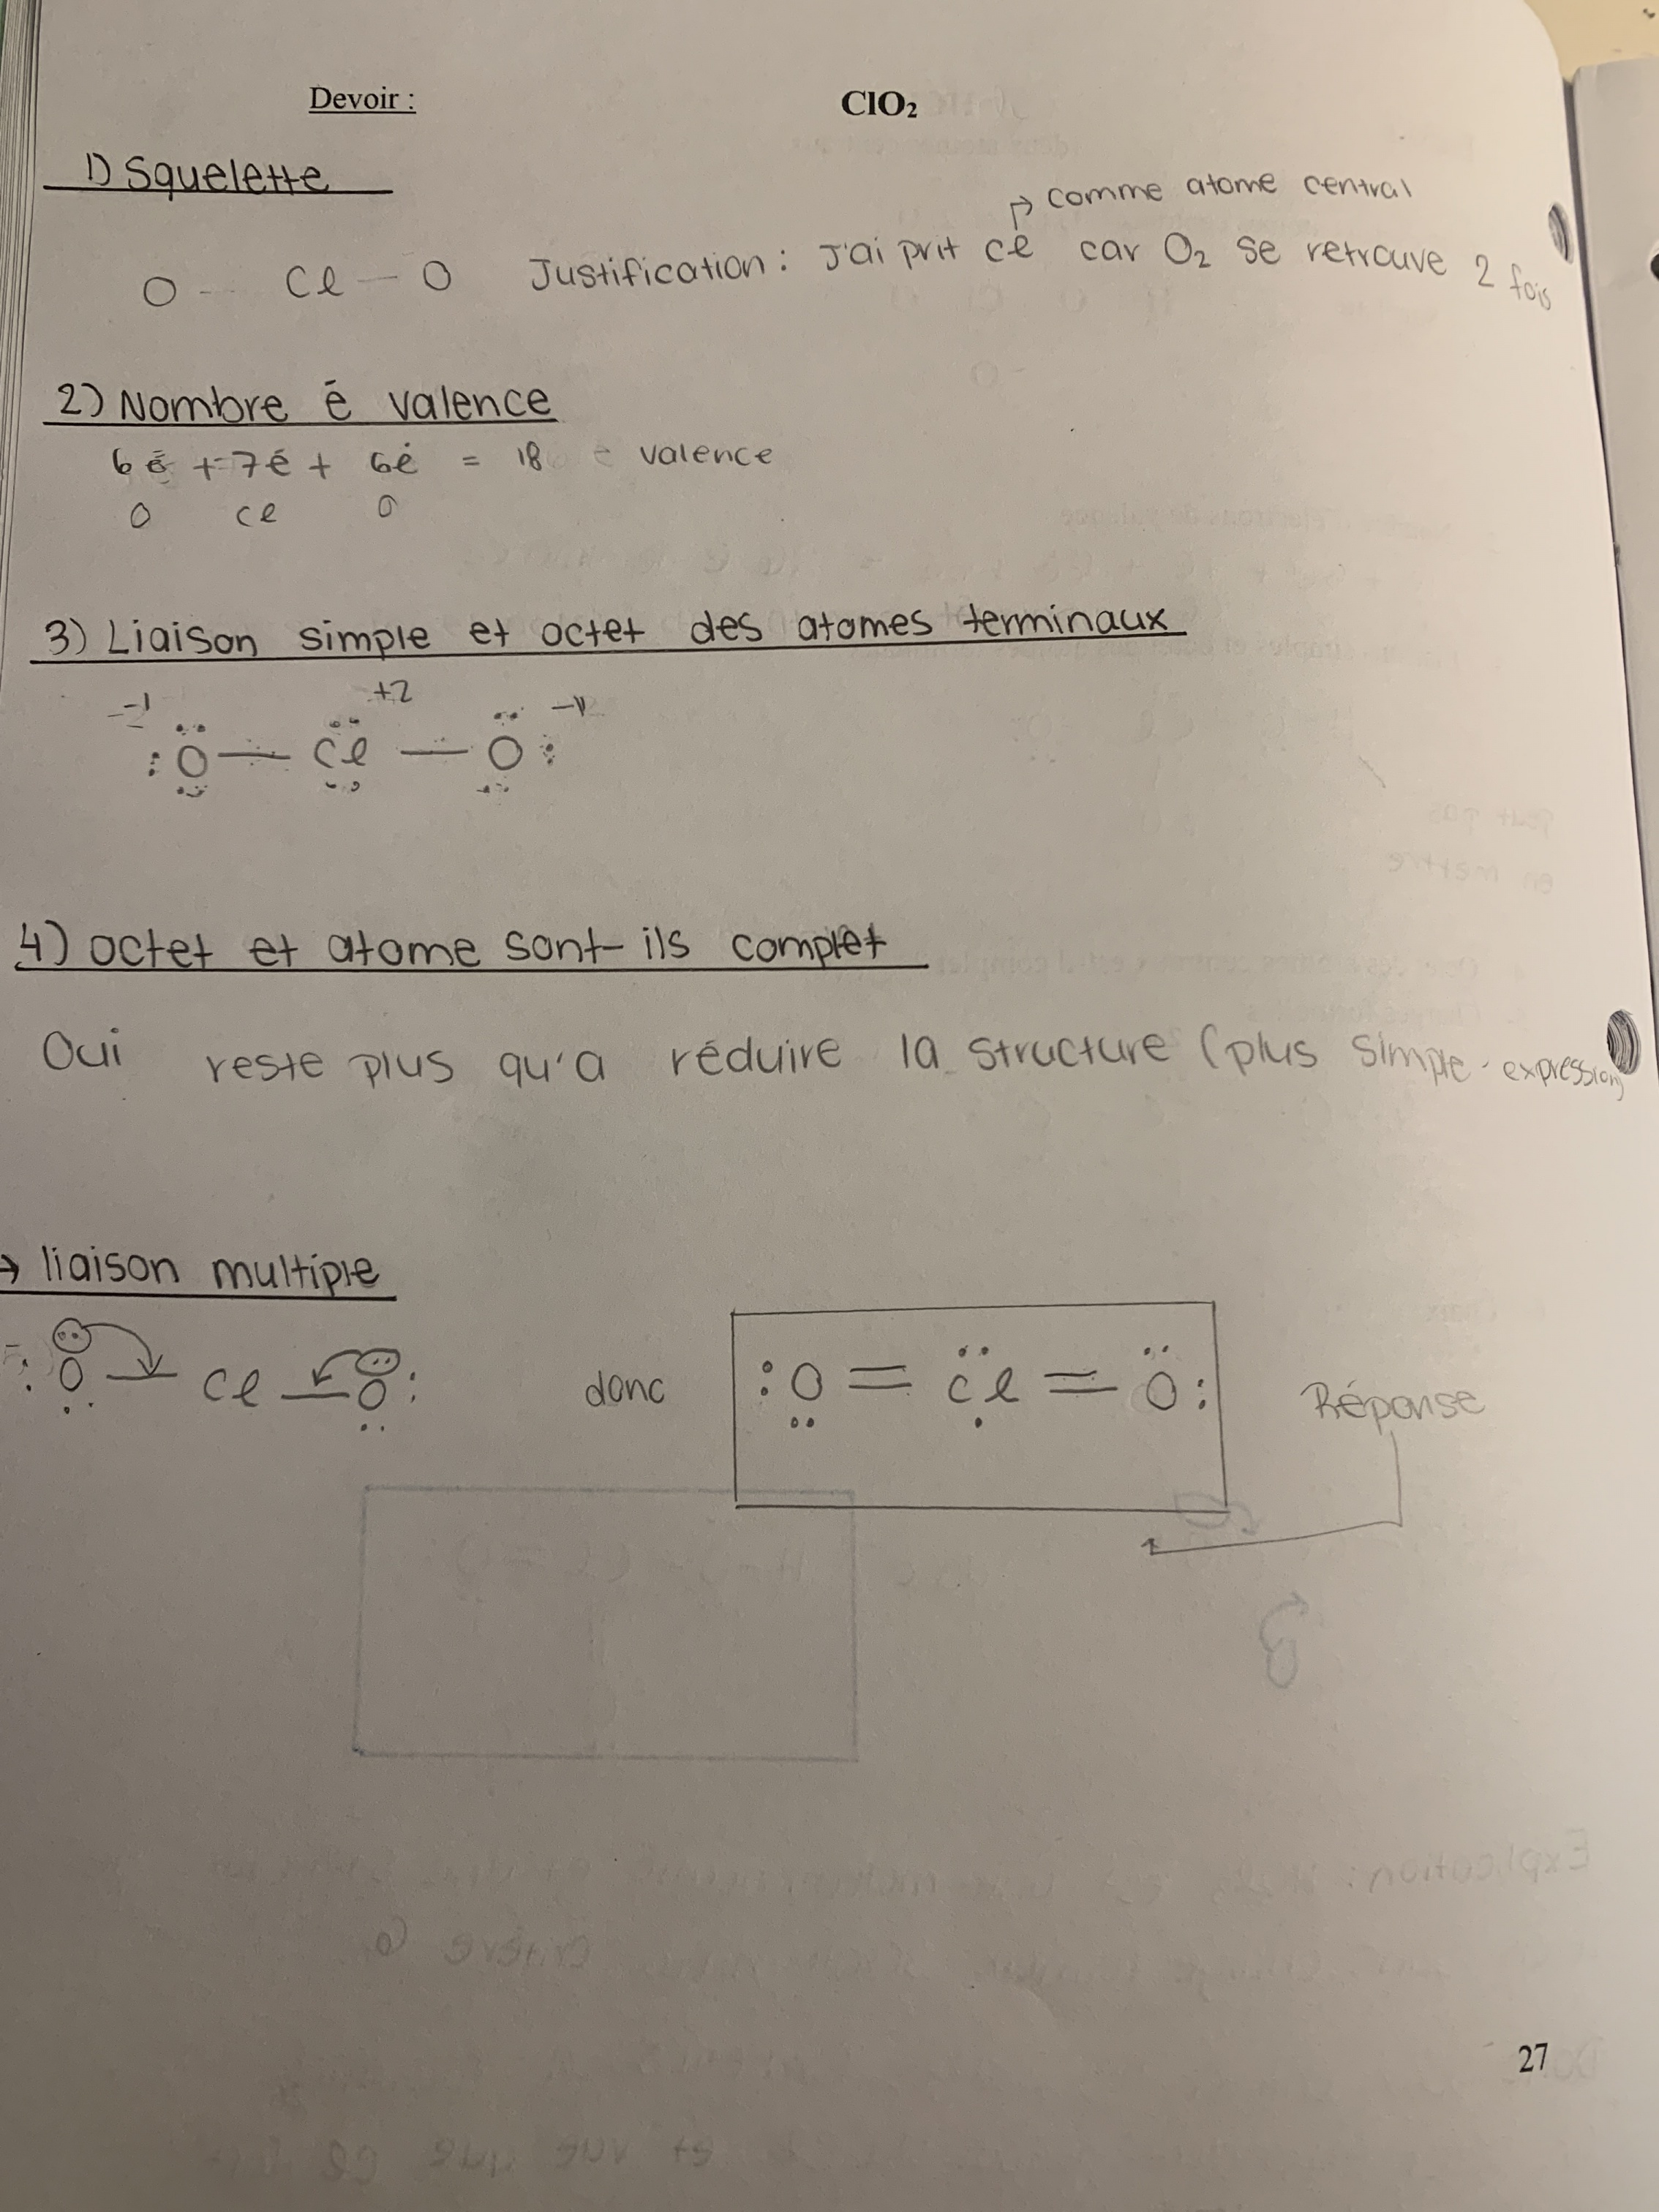 Devoir : ClO₂
1) Squelette
↱ comme atome central
O — Cl — O Justification : J'ai prit Cl car O₂ se retrouve 2 fois
2) Nombre é valence
6é + 7é + 6é = 18 e valence
O Cl O
3) Liaison simple et octet des atomes terminaux
-1 +2 -1
:O — Cl — O:
4) octet et atome sont-ils complet
Oui reste plus qu'a réduire la structure (plus simple expression)
→ liaison multiple
:O — Cl — O: donc :O = Cl = O: Réponse
27